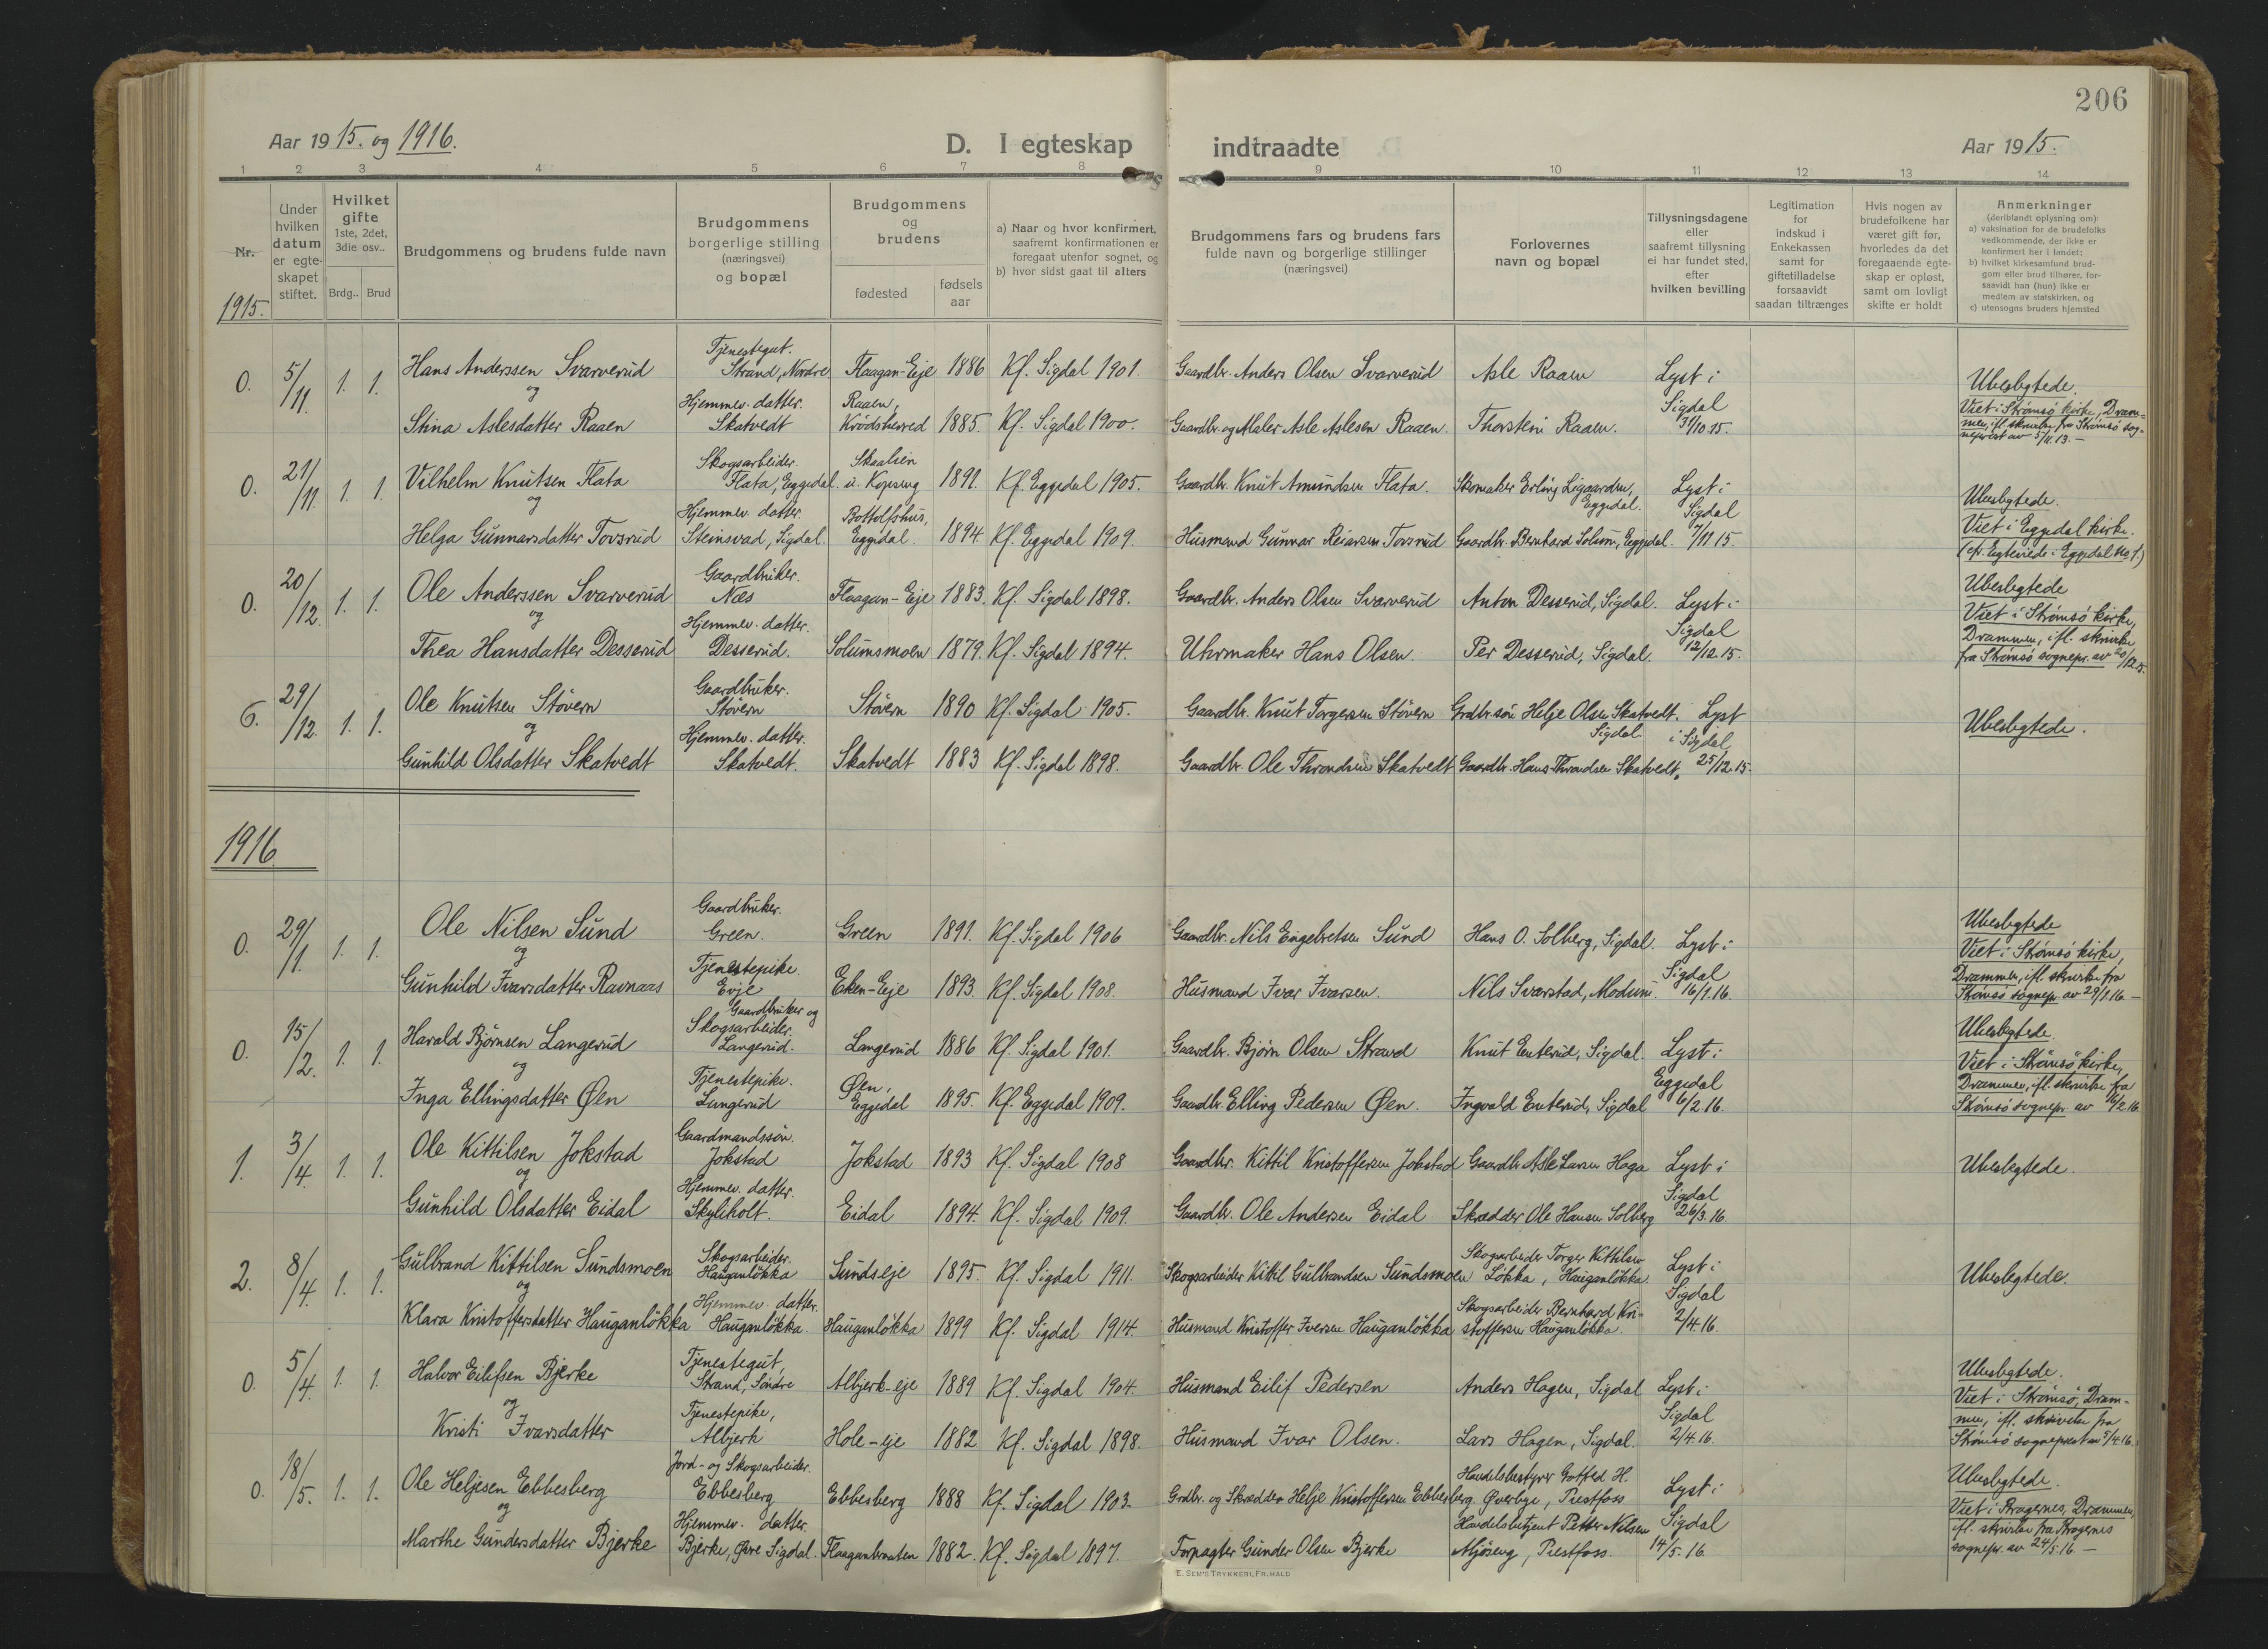 206
Aar 1915. og 1916.
D. I egteskap indtraadte
Aar 1915.
1 2 3 4 5 6 7 8 9 10 11 12 13 14
Nr.
Under hvilken datum er egteskapet stiftet.
Hvilket gifte 1ste, 2det, 3die osv..
Brdg.. Brud
Brudgommens og brudens fulde navn
Brudgommens borgerlige stilling (næringsvei) og bopæl
Brudgommens og brudens
fødested
fødsels aar
a) Naar og hvor konfirmert, saafremt konfirmationen er foregaat utenfor sognet, og
b) hvor sidst gaat til alters
Brudgommens fars og brudens fars fulde navn og borgerlige stillinger (næringsvei)
Forlovernes navn og bopæl
Tillysningsdagene eller saafremt tillysning ei har fundet sted, efter hvilken bevilling
Legitimation for indskud i Enkekassen samt for giftetilladelse forsaavidt saadan tiltrænges
Hvis nogen av brudefolkene har været gift før, hvorledes da det foregaaende egteskap er opløst, samt om lovligt skifte er holdt
Anmerkninger
(deriblandt oplysning om):
a) vaksination for de brudefolks vedkommende, der ikke er konfirmert her i landet;
b) hvilket kirkesamfund brudgom eller brud tilhører, forsaavidt han (hun) ikke er medlem av statskirken, og
c) utensogns bruders hjemsted
1915.
0. 5/11. 1. 1. Hans Anderssen Svarverud
og
Stina Aslesdatter Raaen
Tjenestegut.
Strand, Nordre
Hjemmev. datter.
Skatvedt
Flaagan-Eje 1886 Kf. Sigdal 1901.
Raaen,
Krødsherred 1885. Kf. Sigdal 1900.
Gaardbr. Anders Olsen Svarverud
Gaardbr. og Maler Asle Aslesen Raaen.
Asle Raaen
Thorstein Raaen.
Lyst i
Sigdal
31/10 15.
Ubeslegtede.
Viet i Strømsø kirke, Drammen, ifl. skrivelse fra Strømsø sogneprest av 5/11 13. –
0. 21/11. 1. 1. Vilhelm Knutsen Flata
og
Helga Gunnarsdatter Tovsrud
Skogsarbeider.
Flata, Eggedal.
Hjemmev. datter.
Steinsvad, Sigdal.
Skaalien
u. Kopseng 1891. Kf. Eggedal 1905.
Bottolfshus,
Eggedal. 1894. Kf. Eggedal 1909.
Gaardbr. Knut Amundsen Flata.
Husmand Gunnar Reiarsen Tovsrud
Skomaker Erling Ligaarden,
Eggedal.
Gaardbr. Bernhard Solum, Eggedal.
Lyst i
Sigdal
7/11 15.
Ubeslegtede.
Viet i Eggedal kirke.
(cfr. Egteviede i Eggedal No 1)
0. 20/12. 1. 1. Ole Anderssen Svarverud
og
Thea Hansdatter Desserud
Gaardbruker.
Næs
Hjemmev. datter.
Desserud.
Flaagan-Eje 1883. Kf. Sigdal 1898.
Solumsmoen 1879. Kf. Sigdal 1894.
Gaardbr. Anders Olsen Svarverud
Uhrmaker Hans Olsen.
Anton Desserud, Sigdal.
Per Desserud, Sigdal.
Lyst i
Sigdal
12/12. 15.
Ubeslegtede
Viet i Strømsø kirke,
Drammen, ifl. skrivelse
fra Strømsø sognepr. av 20/12 15.
6. 29/12. 1. 1. Ole Knutsen Støvern
og
Gunhild Olsdatter Skatvedt
Gaardbruker.
Støvern
Hjemmev. datter.
Skatvedt.
Støvern 1890 Kf. Sigdal 1905.
Skatvedt 1883 Kf. Sigdal 1898.
Gaardbr. Knut Torgersen Støvern
Gaardbr. Ole Throndsen Skatvedt
Grdbr.søn Helje Olsen Skatvedt.
Sigdal.
Gaardbr. Hans Throndsen Skatvedt.
Lyst
i Sigdal
25/12. 15.
Ubeslegtede.
1916.
0. 29/1. 1. 1. Ole Nilsen Sund
og
Gunhild Ivarsdatter Ravnaas
Gaardbruker.
Green.
Tjenestepike.
Evje
Green 1891. Kf. Sigdal 1906
Eken-Eje 1893. Kf. Sigdal 1908.
Gaardbr. Nils Engebretsen Sund
Husmand Ivar Ivarsen.
Hans O. Solberg, Sigdal.
Nils Svarstad, Modum.
Lyst i
Sigdal
16/1. 16.
Ubeslegtede
Viet i Strømsø kirke,
Drammen, ifl. skrivelse fra
Strømsø sognepr. av 29/1 16. –
0. 15/2. 1. 1. Harald Bjørnsen Langerud
og
Inga Ellingsdatter Øen
Gaardbruker og
Skogsarbeider.
Langerud.
Tjenestepike.
Langerud
Langerud 1886 Kf. Sigdal 1901.
Øen,
Eggedal 1895. Kf. Eggedal 1909.
Gaardbr. Bjørn Olsen Strand
Gaardbr. Elling Pedersen Øen.
Knut Enterud, Sigdal.
Ingvald Enterud, Sigdal
Lyst i
Eggedal
6/2. 16.
Ubeslegtede.
Viet i Strømsø kirke,
Drammen, ifl. skrivelse fra
Strømsø sognepr. av 16/2. 16.
1. 3/4. 1. 1. Ole Kittilsen Jokstad
og
Gunhild Olsdatter Eidal
Gaardmandssøn.
Jokstad
Hjemmev. datter.
Skyliholt.
Jokstad 1893 Kf. Sigdal 1908
Eidal 1894. Kf. Sigdal 1909.
Gaardbr. Kittil Kristoffersen Jokstad
Gaardbr. Ole Andersen Eidal
Gaardbr. Asle Larsen Haga
Skrædder Ole Hansen Solberg
Lyst i
Sigdal
26/3. 16.
Ubeslegtede.
2. 8/4. 1. 1. Gulbrand Kittilsen Sundsmoen
og
Klara Kristoffersdatter Hauganløkka
Skogsarbeider.
Hauganløkka
Hjemmev. datter.
Hauganløkka.
Sundseje 1895. Kf. Sigdal 1911.
Hauganløkka 1899 Kf. Sigdal 1914.
Skogsarbeider Kittil Gulbrandsen Sundsmoen
Husmand Kristoffer Iversen Hauganløkka
Skogsarbeider Torger Kittilsen
Løkka, Hauganløkka.
Skogsarbeider Bernhard Kristoffersen Hauganløkka.
Lyst i
Sigdal
2/4. 16.
Ubeslegtede.
0. 5/4. 1. 1. Halvor Eilifsen Bjerke
og
Kristi Ivarsdatter
Tjenestegut,
Strand, Søndre
Tjenestepike,
Albjerk
Albjerk-eje 1889 Kf. Sigdal 1904.
Hole-eje 1882 Kf. Sigdal 1898.
Husmand Eilif Pedersen
Husmand Ivar Olsen.
Anders Hagen, Sigdal
Lars Hagen, Sigdal.
Lyst i
Sigdal
2/4. 16.
Ubeslegtede.
Viet i Strømsø, Drammen, ifl. skrivelse fra
Strømsø sogneprest av 5/4 16.
0. 18/5. 1. 1. Ole Heljesen Ebbesberg
og
Marthe Gundersdatter Bjerke
Jord- og Skogsarbeider.
Ebbesberg
Hjemmev. datter.
Bjerke, Øvre Sigdal.
Ebbesberg 1888 Kf. Sigdal 1903.
Flaaganbraaten 1882. Kf. Sigdal 1897.
Grdbr. og Skrædder Helje Kristoffersen Ebbesberg
Forpagter Gunder Olsen Bjerke
Handelsbestyrer Gotfred H.
Øverbye, Prestfoss
Handelsbetjent Petter Nilsen
Mjøseng, Prestfoss.
Lyst i
Sigdal
14/5. 16.
Ubeslegtede.
Viet i Bragernes, Drammen,
ifl. skrivelse fra Bragernes
sognepr. av 24/5. 16. –
E. SEM'S TRYKKERI, FR.HALD